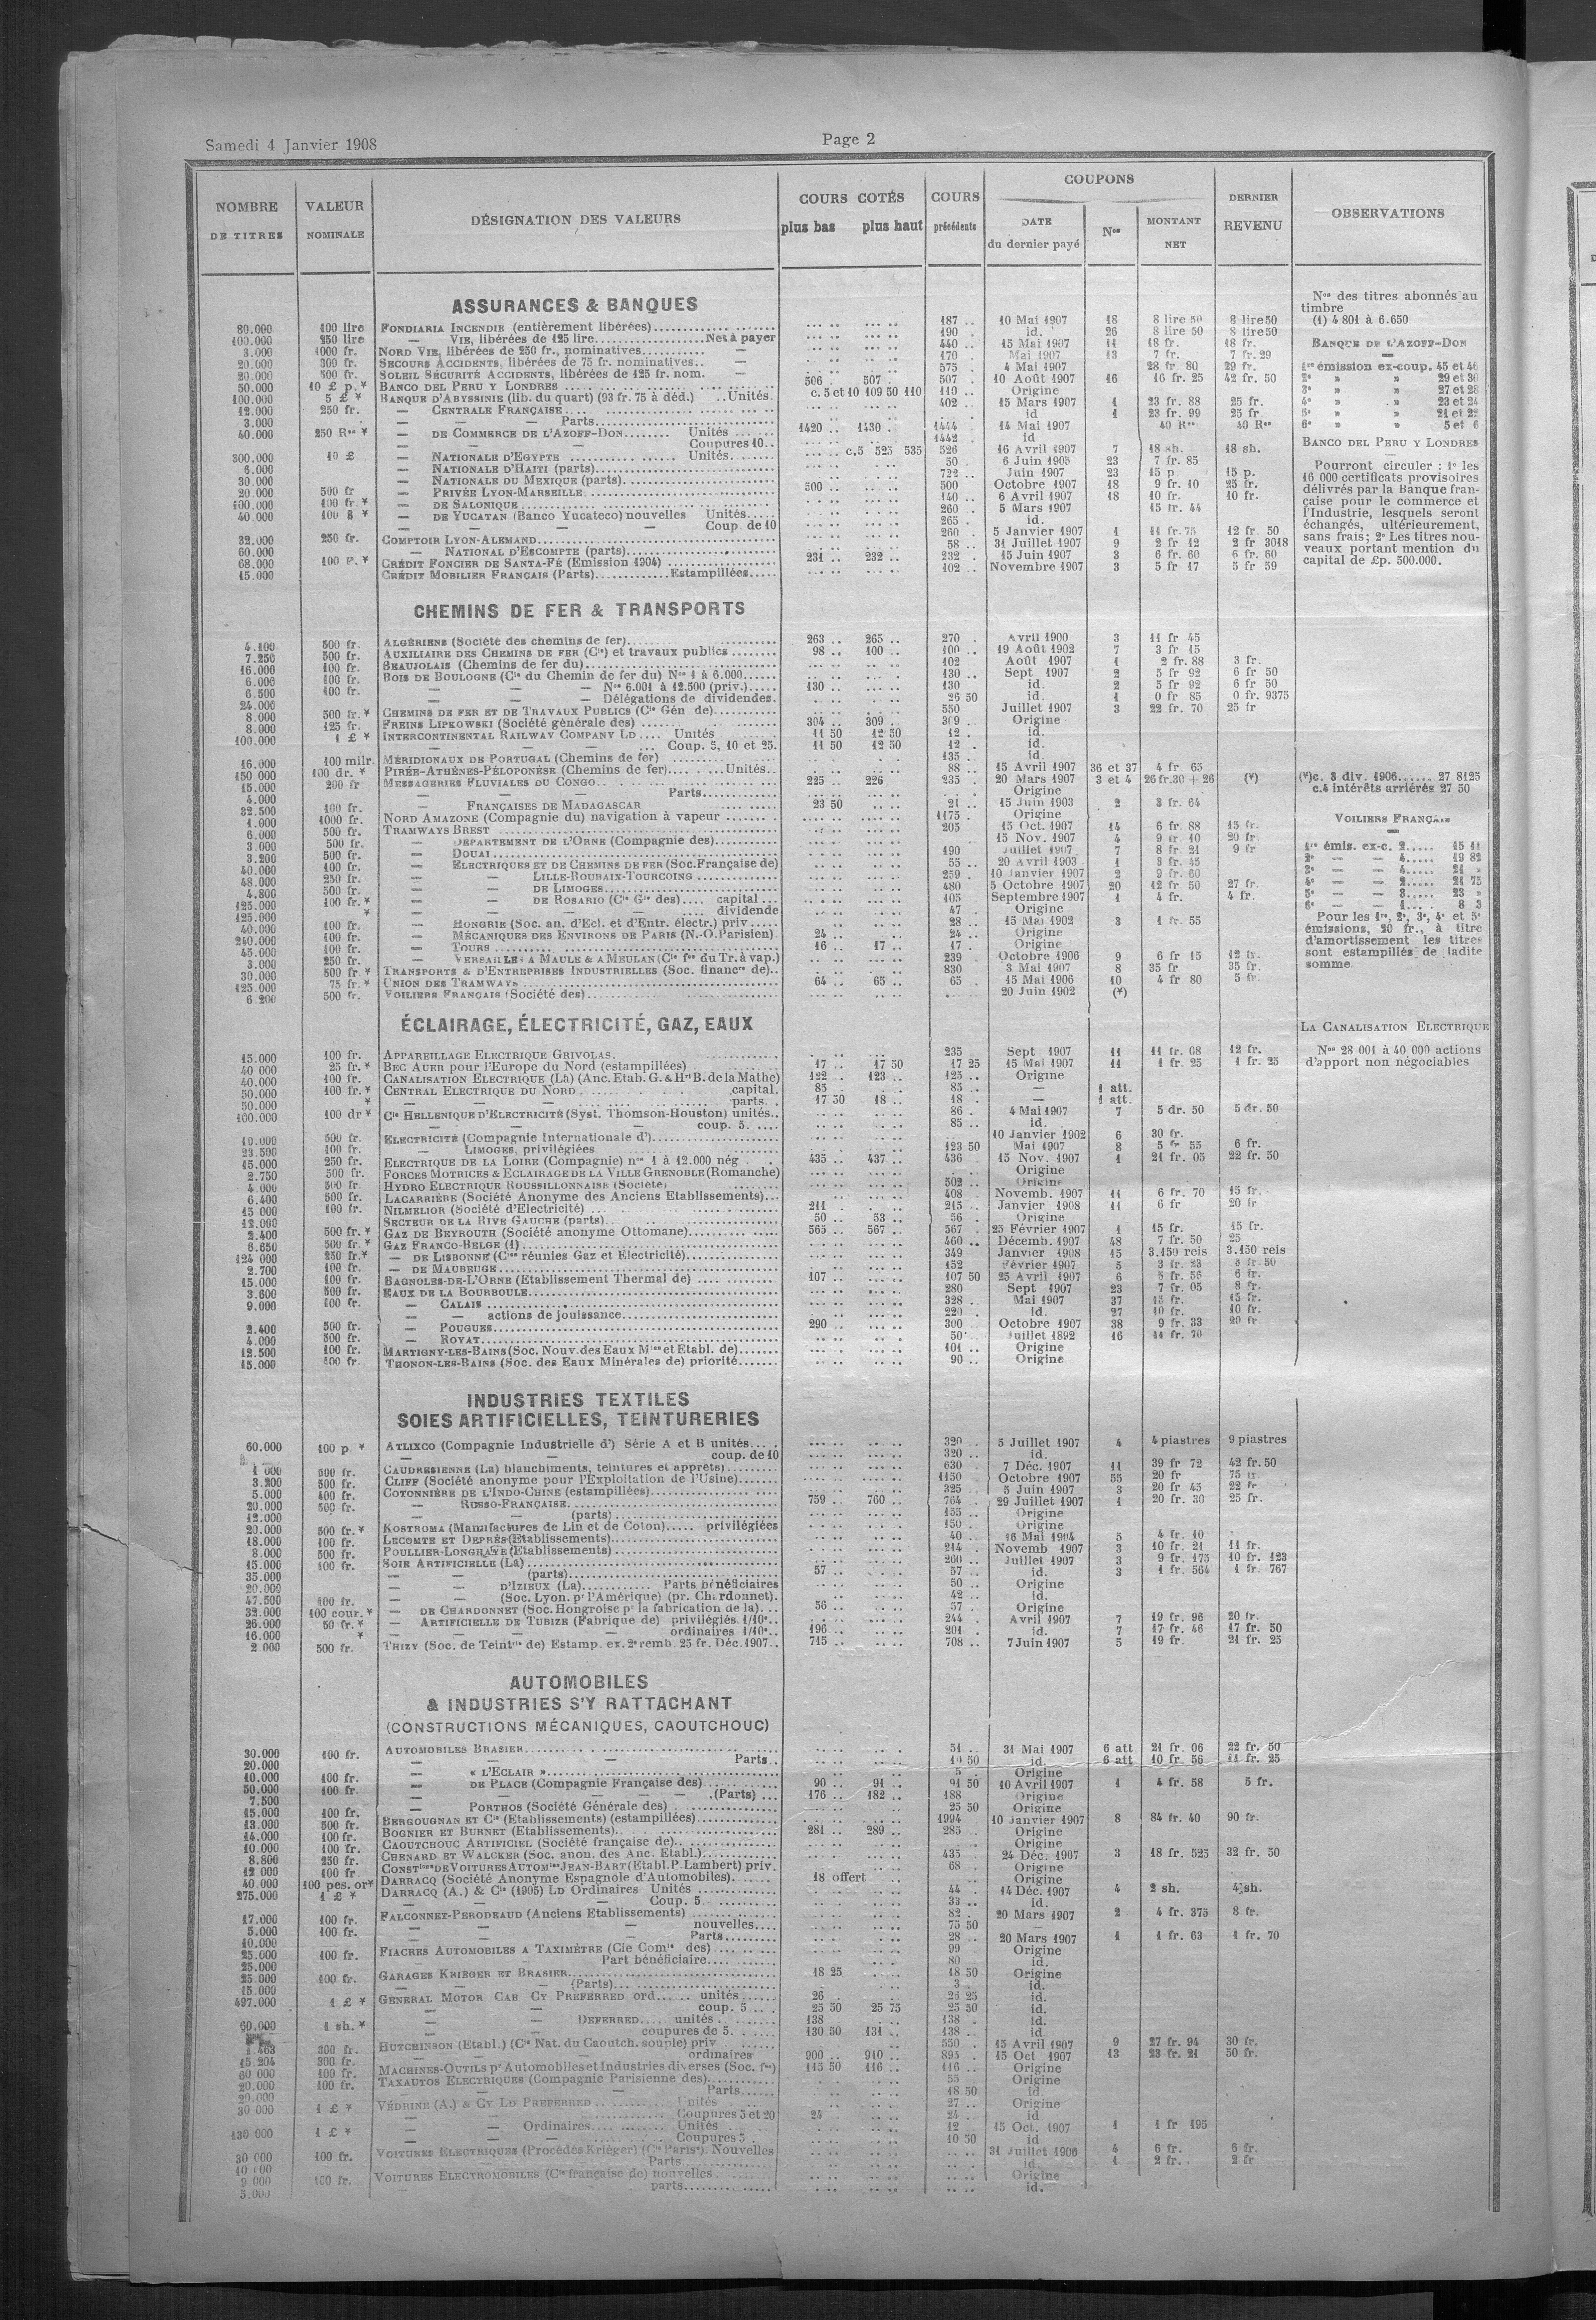 Samedi 4 Janvier 1908
Page 2
NOMBRE DE TITRES | VALEUR NOMINALE | DÉSIGNATION DES VALEURS | COURS COTÉS plus bas plus haut | COURS précédents | COUPONS DATE du dernier payé | Nos | MONTANT NET | DERNIER REVENU | OBSERVATIONS
ASSURANCES & BANQUES
80.000 100 lire FONDIARIA INCENDIE (entièrement libérées) 187 10 Mai 1907 18 8 lire 50 8 lire 50
100.000 250 lire — VIE, libérées de 125 lire Net à payer 190 id. 26 8 lire 50 8 lire 50
3.000 1000 fr. NORD VIE, libérées de 250 fr., nominatives — 440 15 Mai 1907 11 18 fr. 18 fr.
20.000 300 fr. SECOURS ACCIDENTS, libérées de 75 fr. nominatives — 170 Mai 1907 13 7 fr. 7 fr. 29
20.000 500 fr. SOLEIL SÉCURITÉ ACCIDENTS, libérées de 125 fr. nom. — 575 4 Mai 1907 28 fr 80 29 fr.
50.000 10 £ p. * BANCO DEL PERU Y LONDRES 506 507 507 10 Août 1907 16 16 fr. 25 42 fr. 50
100.000 5 £ * BANQUE D'ABYSSINIE (lib. du quart) (93 fr. 75 à déd.) Unités c. 5 et 10 109 50 110 110 Origine
12.000 250 fr. — CENTRALE FRANÇAISE 402 15 Mars 1907 1 23 fr. 88 25 fr.
3.000 — — — Parts id 1 23 fr. 99 25 fr.
40.000 250 Res * — DE COMMERCE DE L'AZOFF-DON Unités 1420 1430 1444 14 Mai 1907 40 Res 40 Res
— — Coupures 10 1442 id
300.000 10 £ — NATIONALE D'EGYPTE Unités c.5 525 535 526 16 Avril 1907 7 18 sh. 18 sh.
6.000 — NATIONALE D'HAITI (parts) 50 6 Juin 1905 23 7 fr. 85
30.000 — NATIONALE DU MEXIQUE (parts) 722 Juin 1907 23 15 p. 15 p.
20.000 500 fr — PRIVÉE LYON-MARSEILLE 500 500 Octobre 1907 18 9 fr. 10 25 fr.
100.000 100 fr * — DE SALONIQUE 140 6 Avril 1907 18 10 fr. 10 fr.
40.000 100 $ * — DE YUCATAN (Banco Yucateco) nouvelles Unités 260 5 Mars 1907 15 fr. 44
— — — Coup. de 10 265 id.
32.000 250 fr. COMPTOIR LYON-ALEMAND 260 5 Janvier 1907 1 11 fr. 75 12 fr. 50
60.000 — NATIONAL D'ESCOMPTE (parts) 58 31 Juillet 1907 9 2 fr 12 2 fr 3048
68.000 100 P. * CRÉDIT FONCIER DE SANTA-FÉ (Emission 1904) 231 232 232 15 Juin 1907 3 6 fr. 60 6 fr. 60
15.000 CRÉDIT MOBILIER FRANÇAIS (Parts) Estampillées 102 Novembre 1907 3 5 fr 17 5 fr 59
Nos des titres abonnés au
timbre
(1) 4 801 à 6.650
BANQUE DE L'AZOFF-DON
1re émission ex-coup. 45 et 46
2e » » 29 et 30
3e » » 27 et 28
4e » » 23 et 24
5e » » 21 et 22
6e » » 5 et 6
BANCO DEL PERU Y LONDRES
Pourront circuler : 1° les
16 000 certificats provisoires
délivrés par la Banque fran-
çaise pour le commerce et
l'Industrie, lesquels seront
échangés, ultérieurement,
sans frais; 2° Les titres nou-
veaux portant mention du
capital de £p. 500.000.
CHEMINS DE FER & TRANSPORTS
4.100 500 fr. ALGÉRIENS (Société des chemins de fer) 263 265 270 Avril 1900 3 11 fr 45
7.250 500 fr. AUXILIAIRE DES CHEMINS DE FER (Cie) et travaux publics 98 100 100 19 Août 1902 7 3 fr 15
16.000 100 fr. BEAUJOLAIS (Chemins de fer du) 102 Août 1907 1 2 fr. 88 3 fr.
6.006 100 fr. BOIS DE BOULOGNE (Cie du Chemin de fer du) Nos 1 à 6.000 130 Sept 1907 2 5 fr 92 6 fr 50
6.500 100 fr. — — — Nos 6.001 à 12.500 (priv.) 130 130 id. 2 5 fr 92 6 fr 50
24.000 — — — Délégations de dividendes. 26 50 id. 1 0 fr 85 0 fr. 9375
8.000 500 fr. * CHEMINS DE FER ET DE TRAVAUX PUBLICS (Cie Gén de) 550 Juillet 1907 3 22 fr. 70 25 fr
8.000 125 fr. FREINS LIPKOWSKI (Société générale des) 304 309 309 Origine
100.000 1 £ * INTERCONTINENTAL RAILWAY COMPANY LD Unités 11 50 12 50 12 id.
— — — Coup. 5, 10 et 25. 11 50 12 50 12 id.
16.000 100 milr. MÉRIDIONAUX DE PORTUGAL (Chemins de fer) 135 id.
150 000 100 dr. * PIRÉE-ATHÈNES-PÉLOPONÈSE (Chemins de fer) Unités 88 15 Avril 1907 36 et 37 4 fr. 65
15.000 200 fr MESSAGERIES FLUVIALES DU CONGO 225 226 235 20 Mars 1907 3 et 4 26 fr. 30 + 26 (*)
4.000 — — — Parts Origine
32.500 100 fr. — FRANÇAISES DE MADAGASCAR 23 50 21 15 Juin 1903 2 3 fr. 64
1.000 1000 fr. NORD AMAZONE (Compagnie du) navigation à vapeur 1175 Origine
6.000 500 fr. TRAMWAYS BREST 205 15 Oct. 1907 14 6 fr 88 15 fr.
3.000 500 fr. — DÉPARTEMENT DE L'ORNE (Compagnie des) 15 Nov. 1907 4 9 fr 10 20 fr
3.200 500 fr. — DOUAI 190 Juillet 1907 7 8 fr 21 9 fr
40.000 100 fr. — ELECTRIQUES ET DE CHEMINS DE FER (Soc. Française de) 55 20 Avril 1903 1 3 fr. 45
48.000 250 fr. — — LILLE-ROUBAIX-TOURCOING 259 10 Janvier 1907 2 9 fr. 60
4.800 500 fr. — — DE LIMOGES 480 5 Octobre 1907 20 12 fr 50 27 fr.
125.000 100 fr. * — — DE ROSARIO (Cie Gle des) capital 105 Septembre 1907 1 4 fr. 4 fr.
125.000 * — — — dividende 47 Origine
40.000 100 fr. — HONGRIE (Soc. an. d'Ecl. et d'Entr. électr.) priv 28 15 Mai 1902 3 1 fr. 55
240.000 100 fr. — MÉCANIQUES DES ENVIRONS DE PARIS (N.-O. Parisien) 24 24 Origine
45.000 100 fr. — TOURS 16 17 17 Origine
3.000 250 fr. — VERSAILLES A MAULE & A MEULAN (Cie fse du Tr. à vap.) 239 Octobre 1906 9 6 fr 15 12 fr.
30.000 500 fr. * TRANSPORTS & D'ENTREPRISES INDUSTRIELLES (Soc. financre de) 830 3 Mai 1907 8 35 fr 35 fr.
125.000 75 fr. * UNION DES TRAMWAYS 64 65 65 15 Mai 1906 10 4 fr 80 5 fr.
6.200 500 fr. VOILIERS FRANÇAIS (Société des) 20 Juin 1902 (*)
(*) c. 3 div. 1906 27 8125
c.4 intérêts arriérés 27 50
VOILIERS FRANÇAIS
1re émis. ex-c. 2 15 11
2e — — 4 19 82
3e — — 4 21 »
4e — — 2 21 75
5e — — 3 23 »
6e — — 1 8 3
Pour les 1re, 2e, 3e, 4e et 5e
émissions, 20 fr., à titre
d'amortissement les titres
sont estampillés de ladite
somme.
ÉCLAIRAGE, ÉLECTRICITÉ, GAZ, EAUX
15.000 100 fr. APPAREILLAGE ELECTRIQUE GRIVOLAS. 235 Sept 1907 11 11 fr. 68 12 fr.
40 000 25 fr. * BEC AUER pour l'Europe du Nord (estampillées) 17 17 50 17 25 15 Mai 1907 11 1 fr. 25 1 fr. 25
40.000 100 fr. CANALISATION ELECTRIQUE (La) (Anc. Etab. G. & Hri B. de la Mathe) 122 123 125 Origine
50.000 100 fr. * CENTRAL ELECTRIQUE DU NORD capital. 85 85 — 1 att.
50.000 * — — parts 17 50 18 18 — 1 att.
100.000 100 dr * Cie HELLENIQUE D'ELECTRICITÉ (Syst. Thomson-Houston) unités 86 4 Mai 1907 7 5 dr. 50 5 dr. 50
— — — coup. 5. 85 id.
10.000 500 fr. ELECTRICITÉ (Compagnie Internationale d') 10 Janvier 1902 6 30 fr.
23.500 100 fr. — LIMOGES, privilégiées 123 50 Mai 1907 8 5 fr 55 6 fr.
15.000 250 fr. ELECTRIQUE DE LA LOIRE (Compagnie) nos 1 à 12.000 nég 435 437 436 15 Nov. 1907 1 21 fr. 05 22 fr. 50
2.750 500 fr. FORCES MOTRICES & ECLAIRAGE DE LA VILLE GRENOBLE (Romanche) Origine
4.000 500 fr. HYDRO ELECTRIQUE ROUSSILLONNAISE (Société) 502 Origine
6.400 500 fr. LACARRIÈRE (Société Anonyme des Anciens Etablissements) 408 Novemb. 1907 11 6 fr. 70 15 fr.
15 000 100 fr. NILMELIOR (Société d'Electricité) 211 215 Janvier 1908 11 6 fr 20 fr
12.000 SECTEUR DE LA RIVE GAUCHE (parts) 50 53 56 Origine
2.400 500 fr. * GAZ DE BEYROUTH (Société anonyme Ottomane) 565 567 567 25 Février 1907 1 15 fr. 15 fr.
6.650 500 fr. * GAZ FRANCO-BELGE (1) 460 Décemb. 1907 48 7 fr. 50 25
124 000 250 fr. * — DE LISBONNE (Cies réunies Gaz et Electricité) 349 Janvier 1908 15 3.150 reis 3.150 reis
2.700 100 fr. — DE MAUBEUGE 152 Février 1907 5 3 fr. 23 3 fr. 50
15.000 100 fr. BAGNOLES-DE-L'ORNE (Etablissement Thermal de) 107 107 50 25 Avril 1907 6 5 fr. 56 6 fr.
3.600 500 fr. EAUX DE LA BOURBOULE 280 Sept 1907 23 7 fr. 05 8 fr.
9.000 100 fr. — CALAIS 328 Mai 1907 37 15 fr. 15 fr.
— — actions de jouissance 220 id. 27 10 fr. 10 fr.
2.400 500 fr. — POUGUES 290 300 Octobre 1907 38 9 fr. 33 20 fr
4.000 500 fr. — ROYAT 50 Juillet 1892 16 11 fr. 70
12.500 100 fr. MARTIGNY-LES-BAINS (Soc. Nouv. des Eaux Mles et Etabl. de) 101 Origine
15.000 100 fr. THONON-LES-BAINS (Soc. des Eaux Minérales de) priorité 90 Origine
LA CANALISATION ELECTRIQUE
Nos 28 001 à 40 000 actions
d'apport non négociables
INDUSTRIES TEXTILES
SOIES ARTIFICIELLES, TEINTURERIES
60.000 100 p. * ATLIXCO (Compagnie Industrielle d') Série A et B unités 320 5 Juillet 1907 4 4 piastres 9 piastres
— — coup. de 10 320 id.
1 000 500 fr. CAUDRESIENNE (La) blanchiments, teintures et apprêts) 630 7 Déc. 1907 11 39 fr 72 42 fr. 50
3.200 500 fr. CLIFF (Société anonyme pour l'Exploitation de l'Usine) 1150 Octobre 1907 55 20 fr 75 fr.
5.000 400 fr. COTONNIÈRE DE L'INDO-CHINE (estampillées) 325 5 Juin 1907 3 20 fr 45 22 fr
20.000 500 fr. — RUSSO-FRANÇAISE 759 760 764 29 Juillet 1907 1 20 fr. 30 25 fr.
12.000 — — (parts) 155 Origine
20.000 500 fr. * KOSTROMA (Manufactures de Lin et de Coton) privilégiées 150 Origine
18.000 100 fr. LECOMTE ET DEPRÈS (Etablissements) 40 16 Mai 1904 5 4 fr. 10
8.000 500 fr. POULLIER-LONGHAYE (Etablissements) 214 Novemb 1907 3 10 fr. 21 11 fr.
15.000 100 fr. SOIE ARTIFICIELLE (La) 260 Juillet 1907 3 9 fr. 175 10 fr. 123
35.000 — — (parts) 57 57 id. 3 1 fr. 564 1 fr. 767
20.000 — — D'IZIEUX (La) Parts bénéficiaires 50 Origine
47.500 100 fr. — — (Soc. Lyon. pr l'Amérique) (pr. Chardonnet). 42 id.
32.000 100 cour. * — DE CHARDONNET (Soc. Hongroise pr la fabrication de la) 56 57 Origine
26.000 50 fr. * — ARTIFICIELLE DE TUBIZE (Fabrique de) privilégiés 1/10e 244 Avril 1907 7 19 fr. 96 20 fr.
16.000 * — — — ordinaires 1/10e 196 201 id. 7 17 fr. 46 17 fr. 50
2.000 500 fr. THIZY (Soc. de Teintrie de) Estamp. ex. 2e remb. 25 fr. Déc. 1907 715 708 7 Juin 1907 5 19 fr. 21 fr. 25
AUTOMOBILES
& INDUSTRIES S'Y RATTACHANT
(CONSTRUCTIONS MÉCANIQUES, CAOUTCHOUC)
30.000 100 fr. AUTOMOBILES BRASIER 51 31 Mai 1907 6 att 21 fr. 06 22 fr. 50
20.000 — — — Parts 10 50 id. 6 att 10 fr. 56 11 fr. 25
10.000 100 fr. — « L'ECLAIR » 5 Origine
50.000 100 fr. — DE PLACE (Compagnie Française des) 90 91 91 50 10 Avril 1907 1 4 fr. 58 5 fr.
7.500 — — — — (Parts) 176 182 188 Origine
15.000 100 fr. — PORTHOS (Société Générale des) 25 50 Origine
13.000 500 fr. BERGOUGNAN ET Cie (Etablissements) (estampillées) 1994 10 Janvier 1907 8 84 fr. 40 90 fr.
14.000 100 fr. BOGNIER ET BURNET (Etablissements) 281 289 285 Origine
10.000 100 fr. CAOUTCHOUC ARTIFICIEL (Société française de) Origine
8.800 250 fr. CHENARD ET WALCKER (Soc. anon. des Anc. Etabl.) 435 24 Déc. 1907 3 18 fr. 525 32 fr. 50
12 000 100 fr CONSTions DE VOITURES AUTOMles JEAN-BART (Etabl. P. Lambert) priv. 68 Origine
40.000 100 pes. or* DARRACQ (Société Anonyme Espagnole d'Automobiles) 18 offert Origine
275.000 1 £ * DARRACQ (A.) & Cie (1905) LD Ordinaires Unités 44 14 Déc. 1907 4 2 sh. 4 sh.
— — Coup. 5 33 id.
17.000 100 fr. FALCONNET-PERODEAUD (Anciens Etablissements) 82 20 Mars 1907 2 4 fr. 375 8 fr.
5.000 100 fr. — — — nouvelles 75 50 —
10.000 — — — Parts 28 20 Mars 1907 1 1 fr. 63 1 fr. 70
25.000 100 fr. FIACRES AUTOMOBILES A TAXIMÈTRE (Cie Comle des) 99 Origine
25.000 — — Part bénéficiaire 80 id.
25 000 100 fr. GARAGES KRIÉGER ET BRASIER 18 25 18 50 Origine
15.000 — — — (Parts) 3 id.
497.000 1 £ * GENERAL MOTOR CAB CY PREFERRED ord unités 26 25 25 id.
— — coup. 5 25 50 25 75 25 50 id.
60.000 1 sh. * — — DEFERRED unités 138 138 id.
— — coupures de 5. 130 50 131 138 id
1.463 300 fr. HUTCHINSON (Etabl.) (Cie Nat. du Caoutch. souple) priv 550 15 Avril 1907 9 27 fr. 94 30 fr.
15.204 300 fr. — — ordinaires 900 910 895 15 Oct 1907 13 23 fr. 21 50 fr.
60 000 100 fr. MACHINES-OUTILS pr Automobiles et Industries diverses (Soc. fse) 115 50 116 116 Origine
20.000 100 fr. TAXAUTOS ELECTRIQUES (Compagnie Parisienne des) 55 Origine
20.000 — — Parts 18 50 id.
30 000 1 £ * VÉDRINE (A.) & CY LD PREFERRED Unités 27 Origine
— — Coupures 5 et 20 24 24 id
130 000 1 £ * — — Ordinaires Unités 12 15 Oct. 1907 1 1 fr 195
— — — Coupures 5 10 50 id
30 000 100 fr. VOITURES ELECTRIQUES (Procédés Kriéger) (Cie Parise). Nouvelles 31 Juillet 1906 4 6 fr. 6 fr.
— — Parts id. 1 2 fr. 2 fr
9 000 100 fr. VOITURES ELECTROMOBILES (Cie française de) nouvelles Origine
5.000 — parts id.